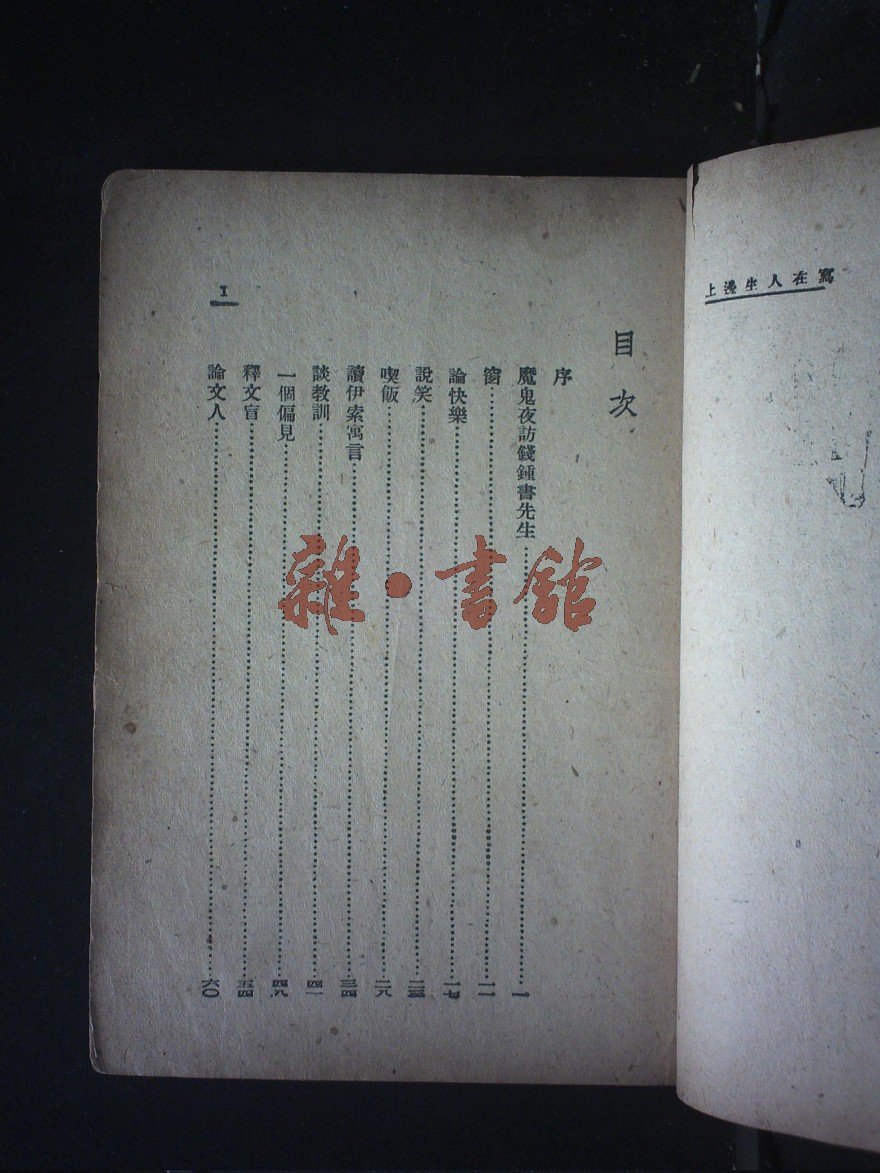 寫在人生邊上
目次
序
魔鬼夜訪錢鍾書先生……一
窗……一一
論快樂……一七
說笑……二三
喫飯……二八
讀伊索寓言……三四
談教訓……四一
一個偏見……四八
釋文盲……五四
論文人……六〇
1
雜·書館